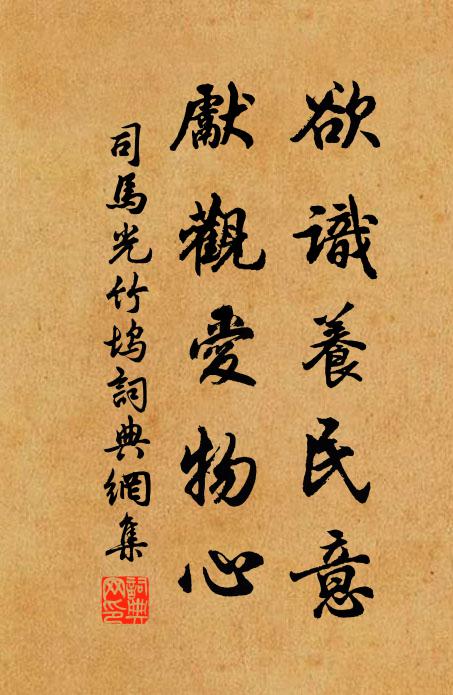 欲識養民意
獻觀愛物心
司馬光竹塢詞典網集
詞典网印